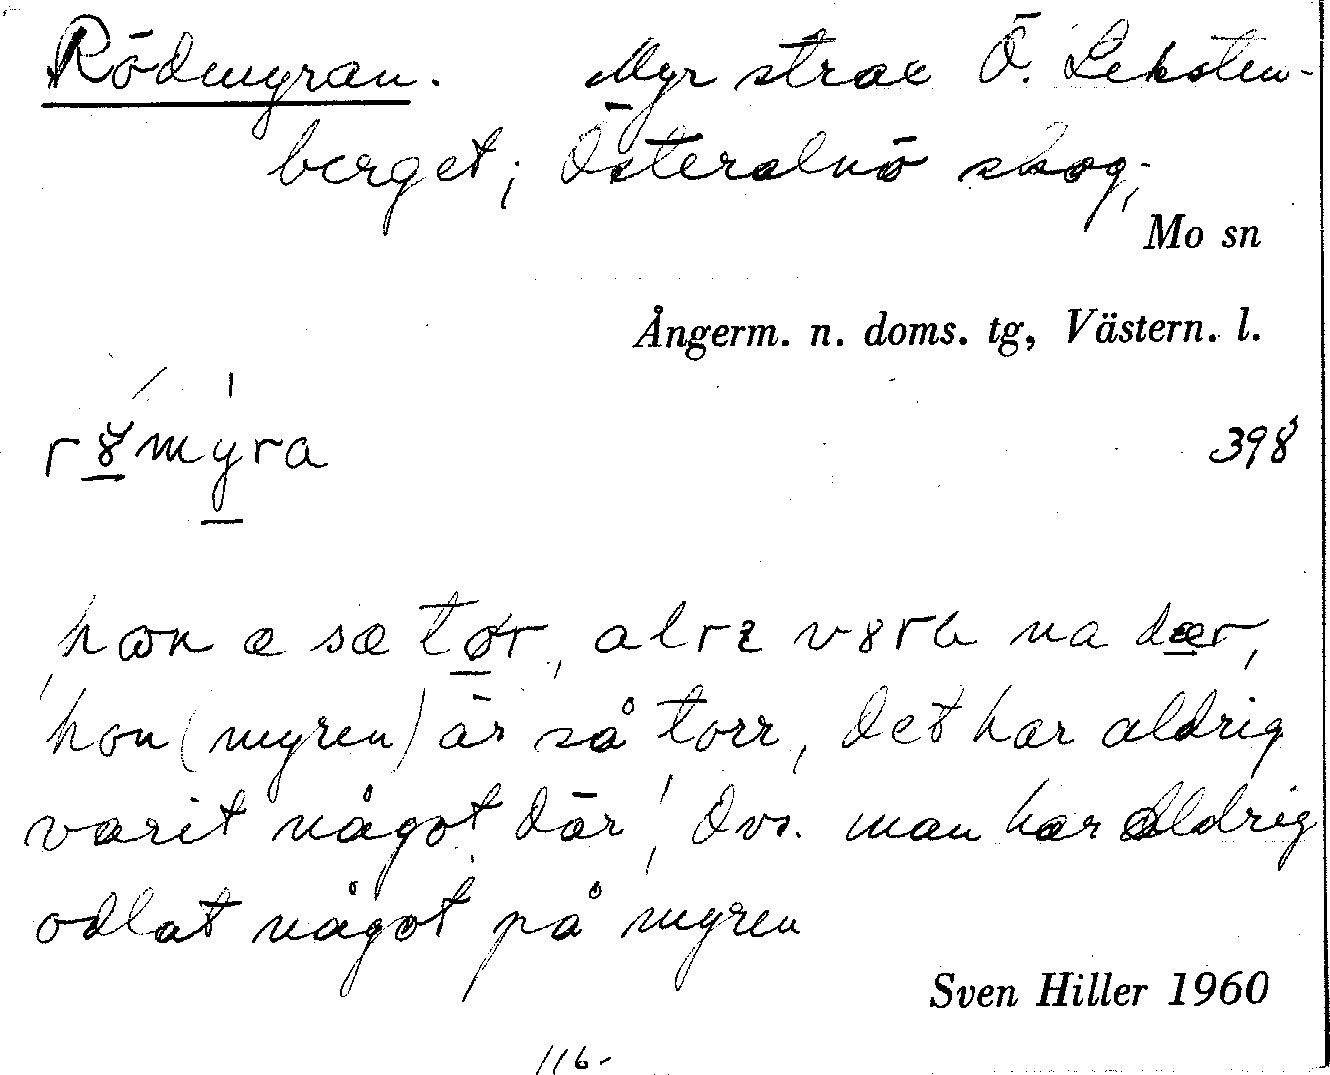 Rödmyran. Myr strax Ö. Leksten-
berget; Österalnö skog;
Mo sn
Ångerm. n. doms. tg, Västern. l.
398
hon (myren) är så torr, det har aldrig
varit något där, dvs. man har aldrig
odlat något på myren
Sven Hiller 1960
116-